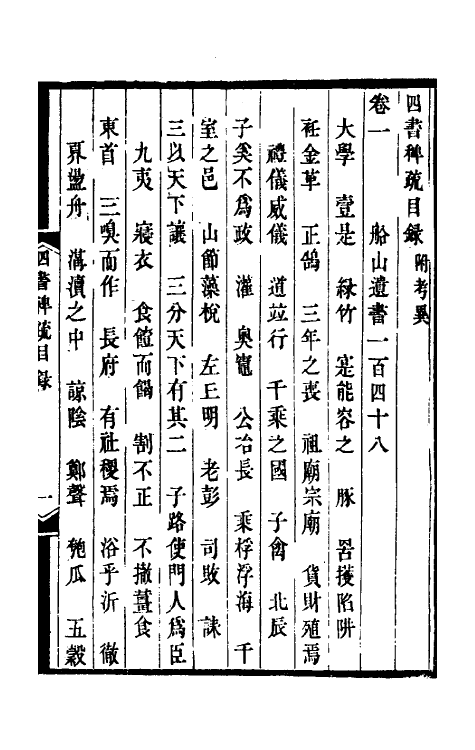 四書稗疏目錄 附考異
卷一 船山遺書一百四十八
大學 壹是 綠竹 寔能容之 豚 罟擭陷阱
衽金革 正鵠 三年之喪 祖廟宗廟 貨財殖焉
禮儀威儀 道竝行 千乘之國 子禽 北辰
子奚不爲政 灌 奥竈 公冶長 乘桴浮海 千
室之邑 山節藻梲 左丘明 老彭 司敗 誄
三以天下讓 三分天下有其二 子路使門人爲臣
九夷 寢衣 食饐而餲 割不正 不撤薑食
東首 三嗅而作 長府 有社稷焉 浴乎沂 徹
奡盪舟 溝瀆之中 諒陰 鄭聲 匏瓜 五穀
四書稗疏目錄 一